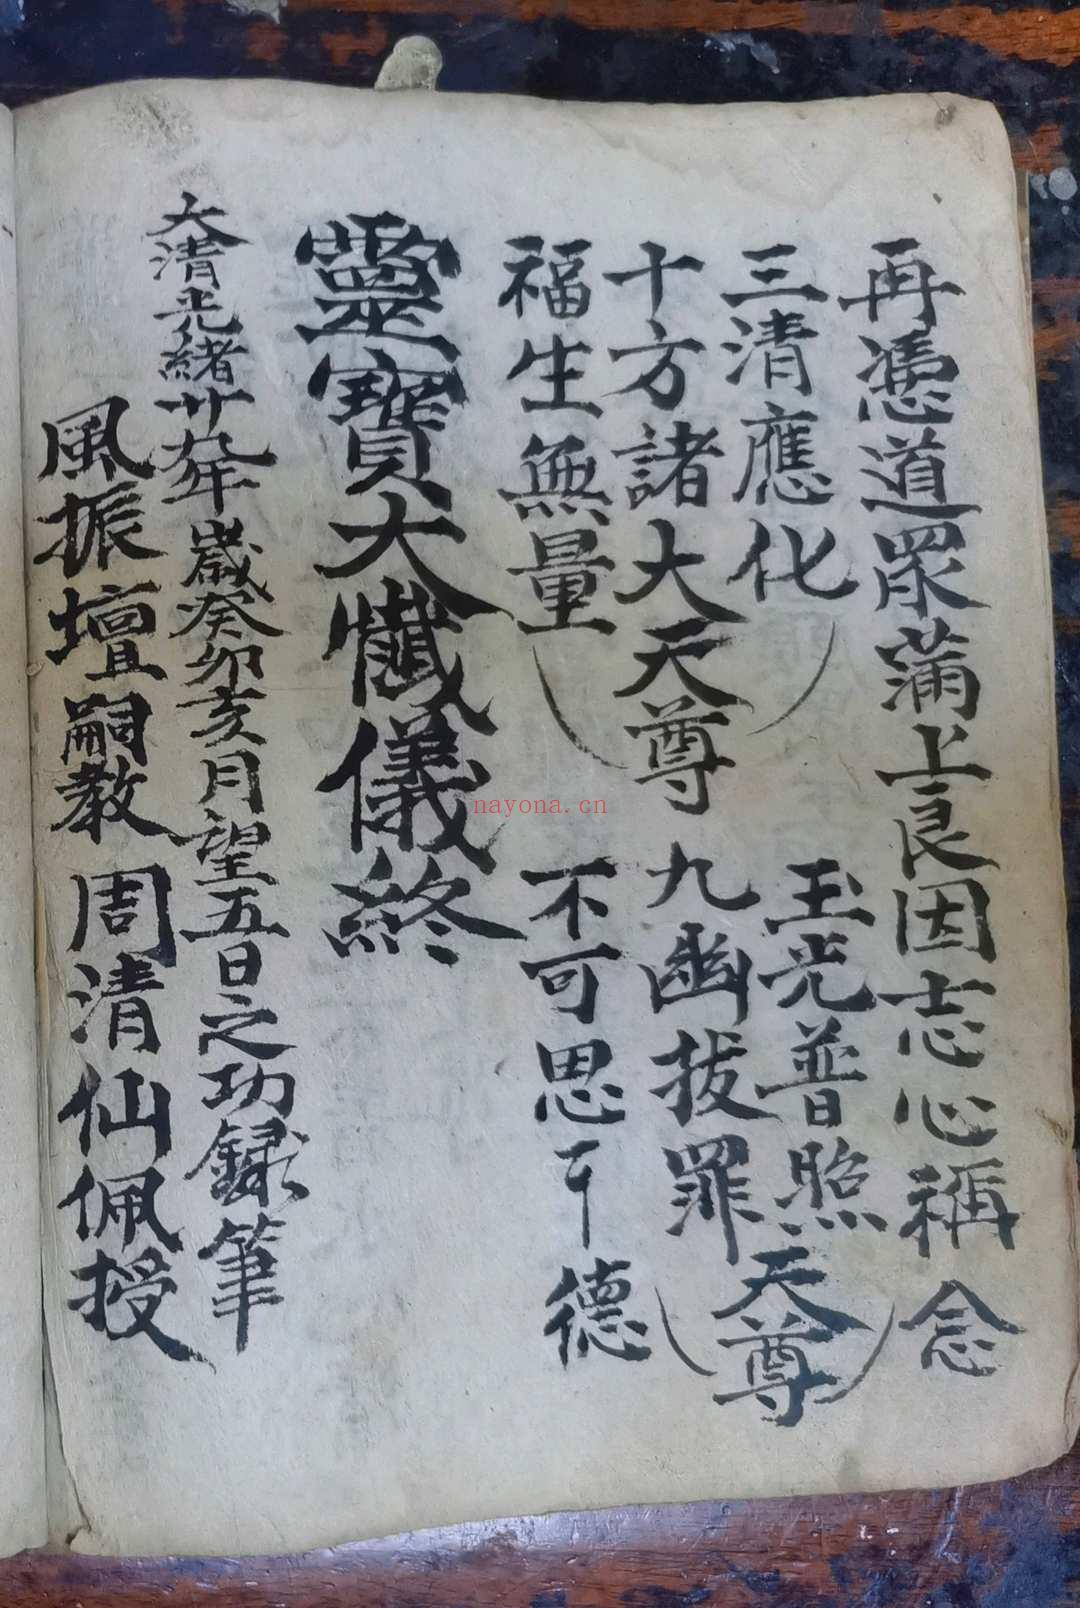 再憑道眾滿上良因志心稱念
三清應化 玉光普照
十方諸大天尊 九幽拔罪 天尊
福生無量 不可思 德
靈寶大懺儀終
大清光緒廿九年歲癸卯亥月望五日之功録筆
風振壇嗣教 周清仙佩授
nayona.cn